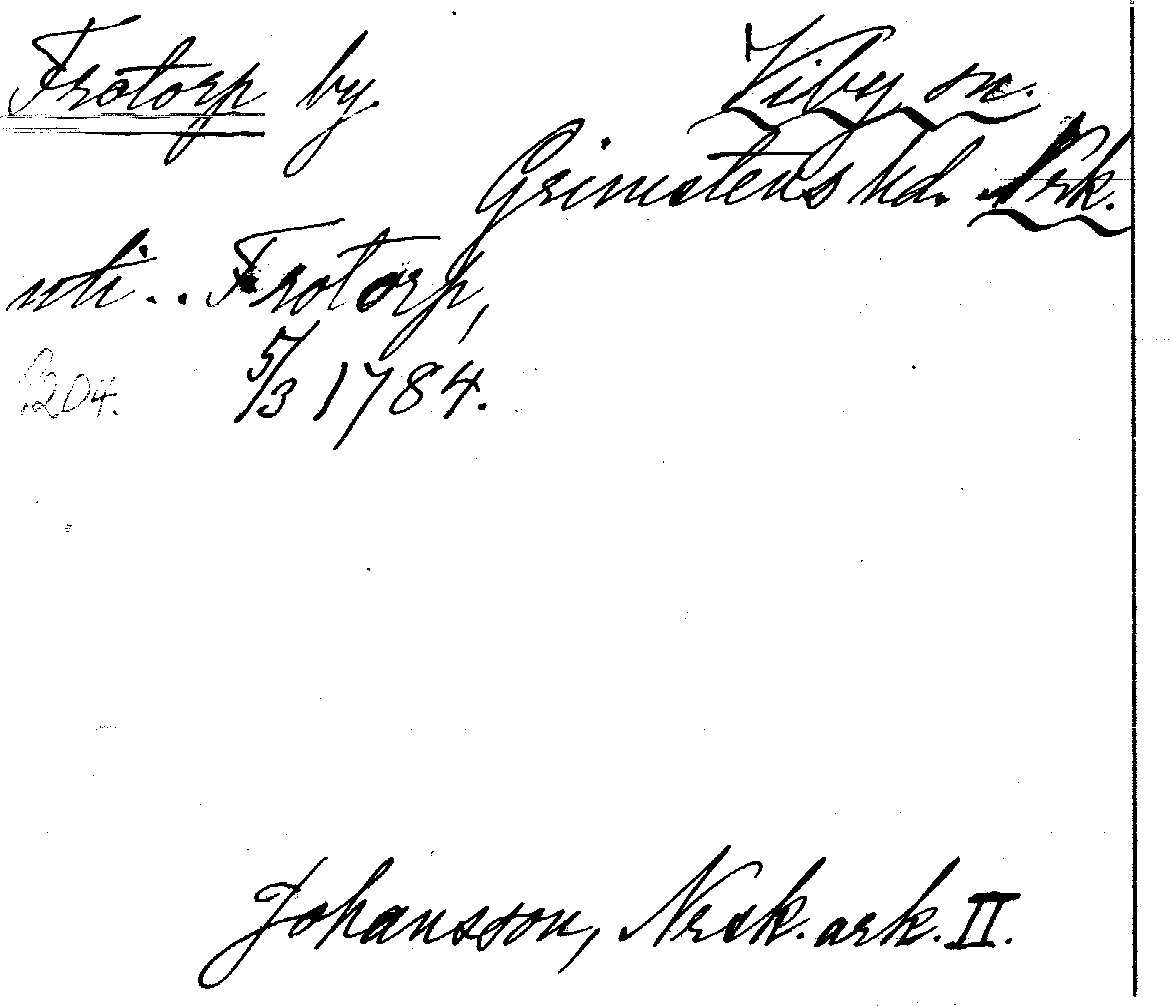 Frotorp by. Viby sn.
Grimstens hd. Nrk.
uti .. Frotorp,
5/3 1784.
S. 204.
Johansson, Nrsk. ark. II.